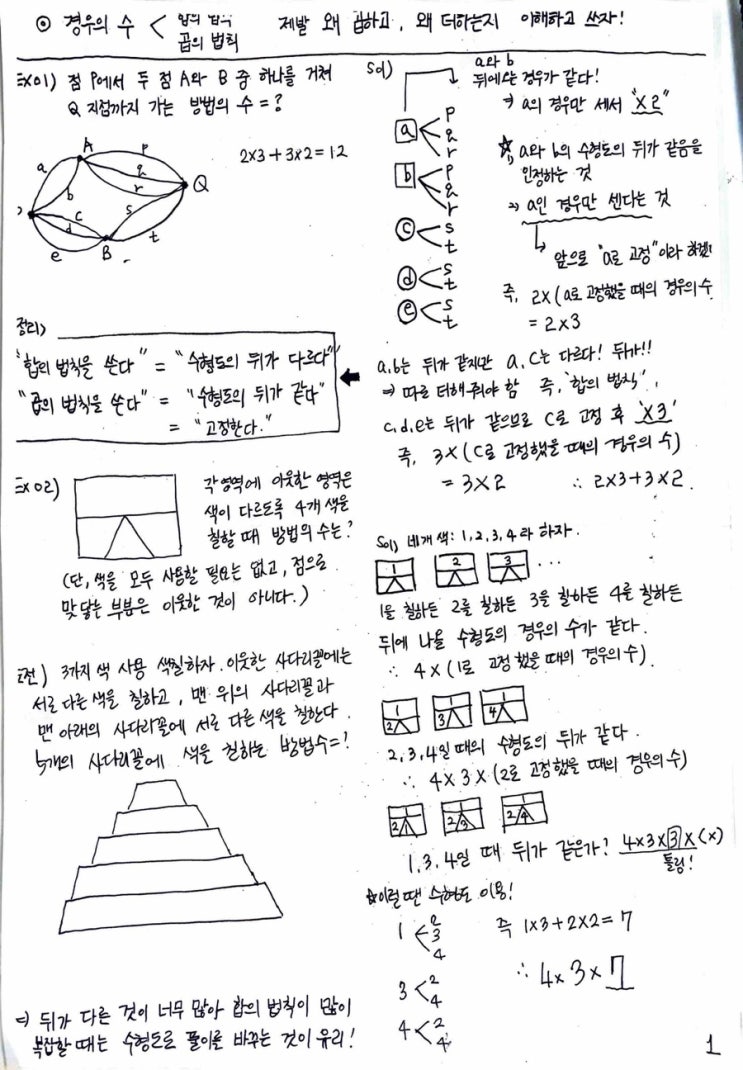 ⊙ 경우의 수 < 합의 법칙
곱의 법칙
제발 왜 곱하고, 왜 더하는지 이해하고 쓰자!
EX01) 점 P에서 두 점 A와 B 중 하나를 거쳐
Q 지점까지 가는 방법의 수=?
2x3+3x2=12
A
P
a
q
r
Q
b
s
c
d
t
e
B
정리)
"합의 법칙을 쓴다" = "수형도의 뒤가 다르다"
"곱의 법칙을 쓴다" = "수형도의 뒤가 같다"
= "고정한다."
EX02)
각영역에 이웃한 영역은
색이 다르도록 4개 색을
칠할 때 방법의 수는?
(단, 색을 모두 사용할 필요는 없고, 점으로
맞닿는 부분은 이웃한 것이 아니다.)
도전) 3가지 색 사용 색칠하자. 이웃한 사다리꼴에는
서로 다른 색을 칠하고, 맨 위의 사다리꼴과
맨 아래의 사다리꼴에 서로 다른 색을 칠한다.
5개의 사다리꼴에 색을 칠하는 방법수=?
⇒ 뒤가 다른 것이 너무 많아 합의 법칙이 많이
복잡할 때는 수형도로 풀이를 바꾸는 것이 유리!
Sol)
a와 b
뒤에오는 경우가 같다!
⇒ a의 경우만 세서 "x2"
a < p
q
r
b < p
q
r
c < s
t
d < s
t
e < s
t
☆ a와 b의 수형도의 뒤가 같음을
인정하는 것
⇒ a인 경우만 센다는 것
앞으로 "a로 고정"이라 하겠음
즉, 2x(a로 고정했을 때의 경우의 수
= 2x3
a,b는 뒤가 같지만 a, c는 다르다! 뒤가!!
⇒ 따로 더해줘야 함 즉, '합의 법칙'.
c,d,e는 뒤가 같으므로 c로 고정 후 'x3'
즉, 3x(c로 고정했을 때의 경우의 수)
= 3x2 ∴ 2x3+3x2.
Sol) 네개 색: 1, 2, 3, 4라 하자.
1 2 3 ...
1을 칠하든 2를 칠하든 3을 칠하든 4를 칠하든
뒤에 나올 수형도의 경우의 수가 같다.
∴ 4x(1로 고정했을 때의 경우의 수)
1 1 1
2 3 4
2, 3, 4일 때의 수형도의 뒤가 같다.
∴ 4x3x(2로 고정했을 때의 경우의 수)
1 1 1
2 1 2 3 2 4
1, 3, 4일 때 뒤가 같은가? 4x3x3x(x)
틀림!
☆이럴 땐 수형도 이용!
1 < 2
3
4
3 < 2
4
4 < 2
4
즉 1x3+2x2=7
∴ 4x3x7
1